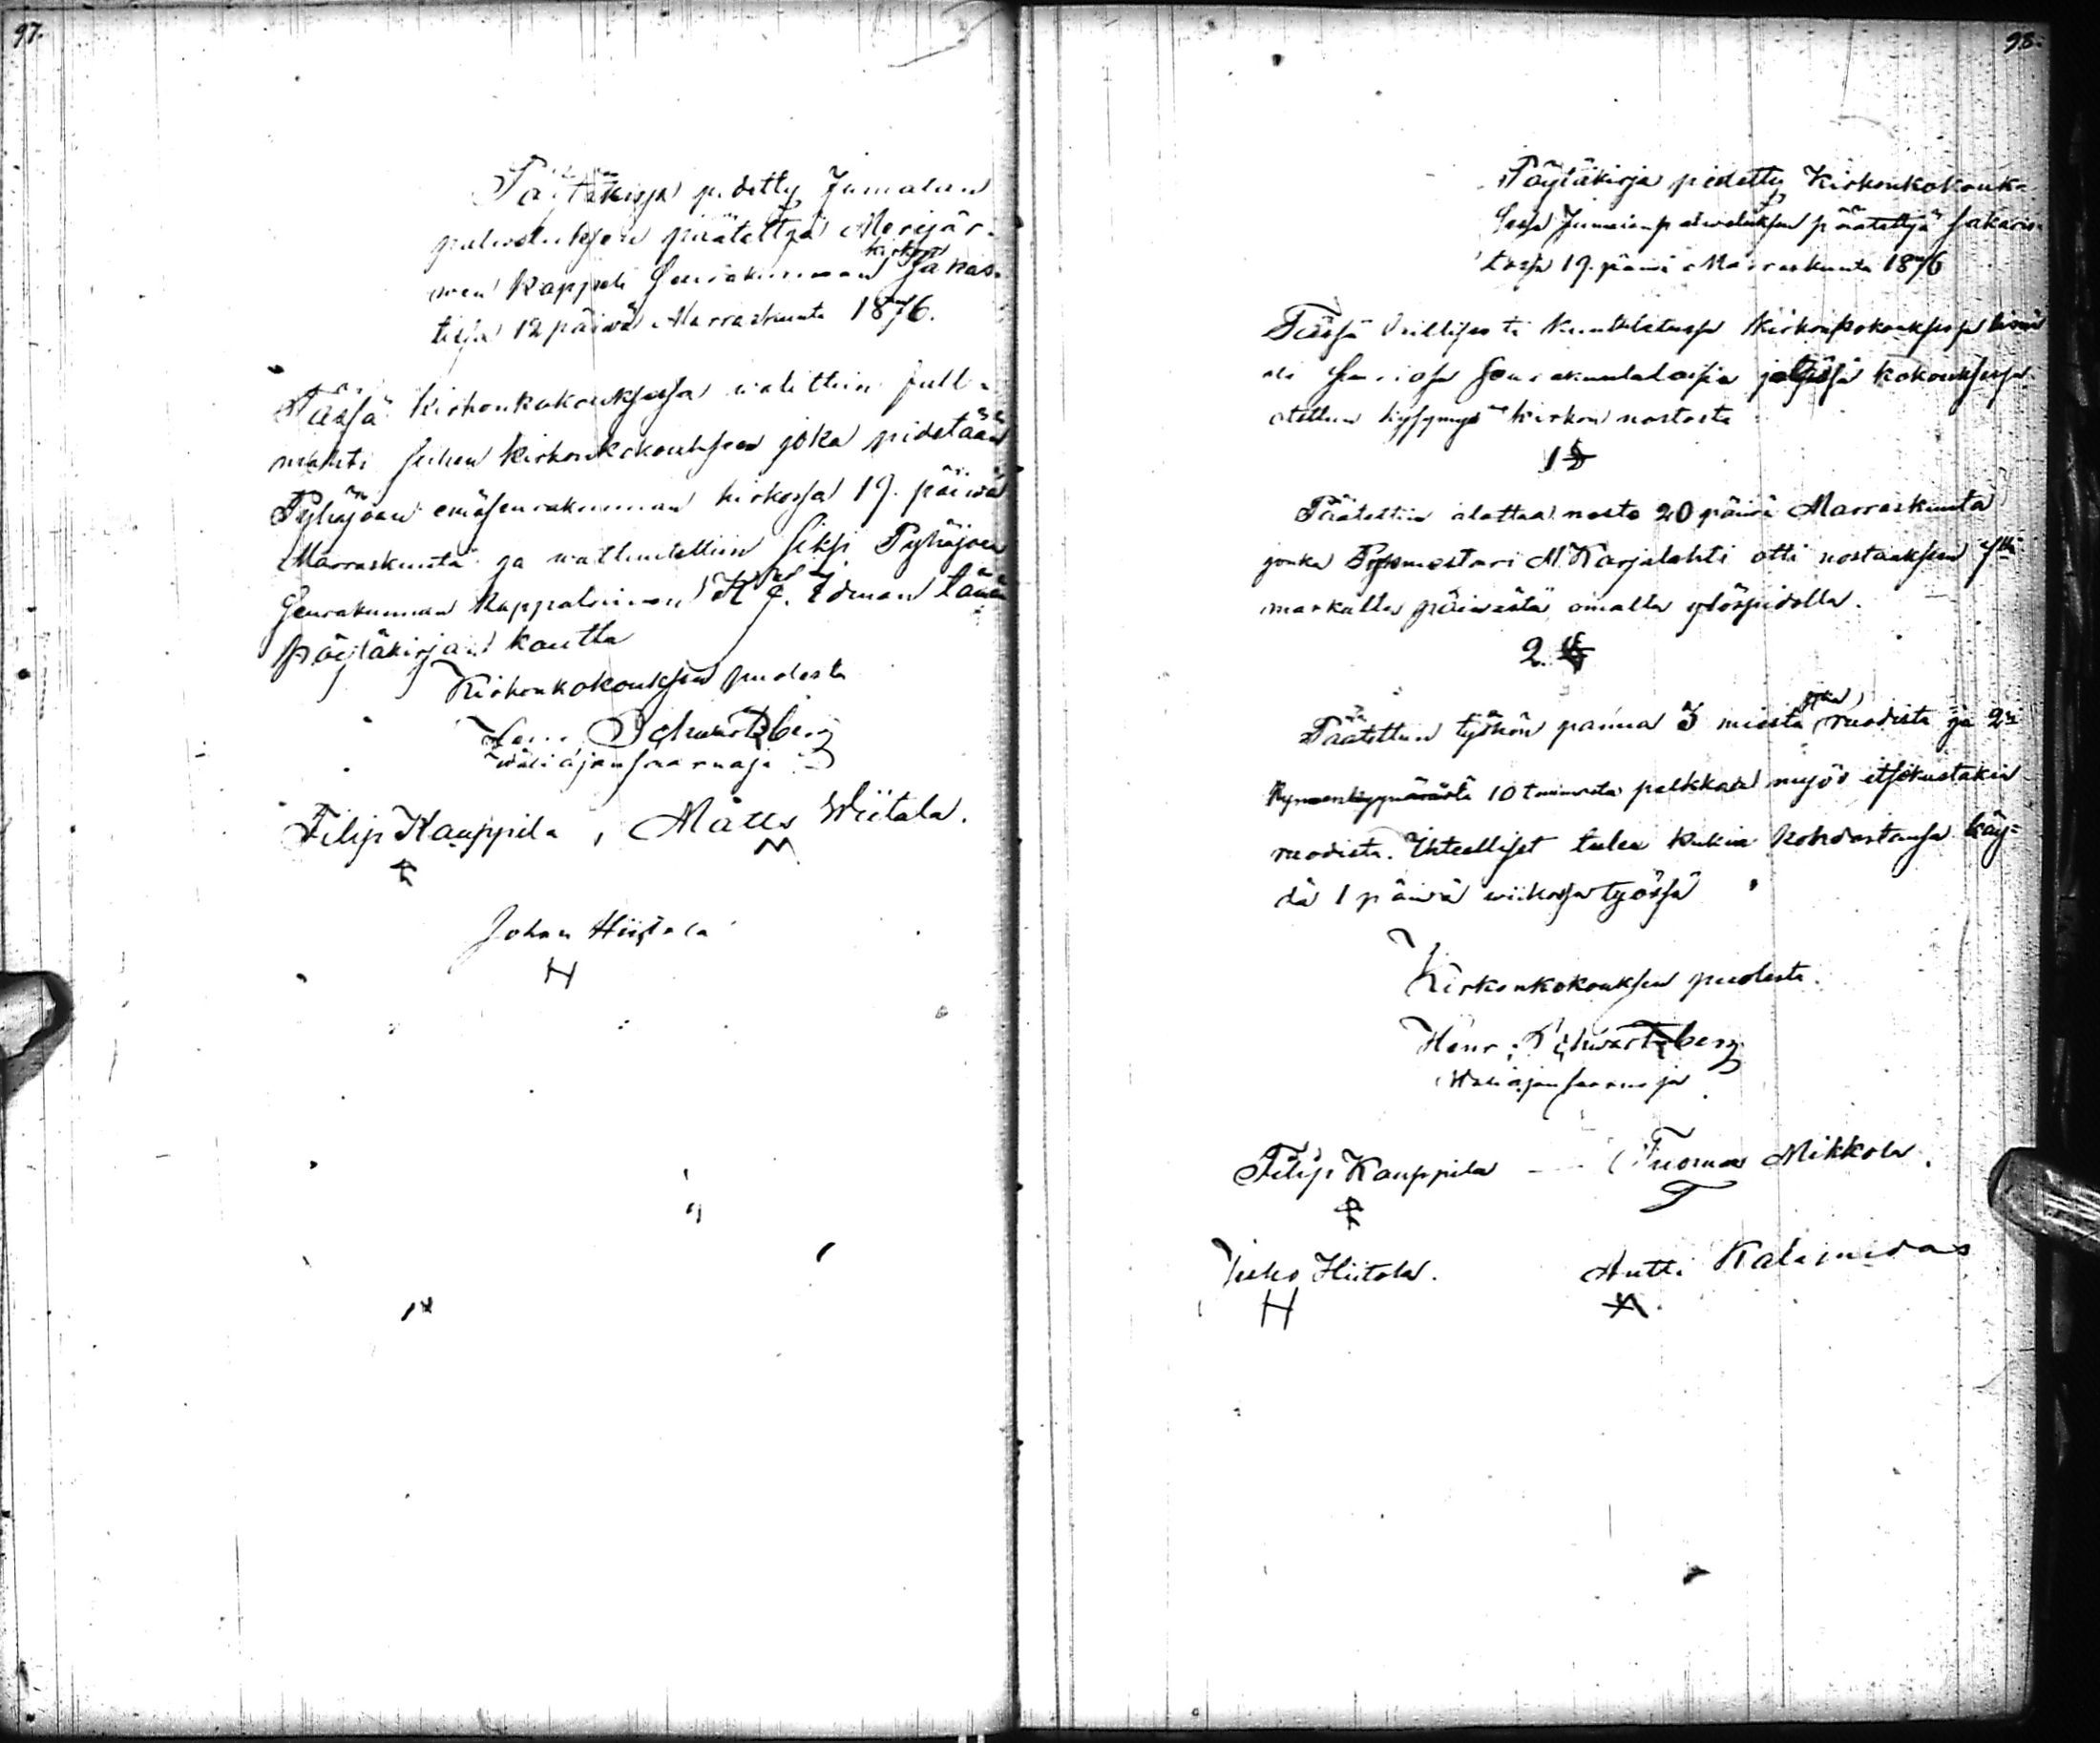 97.
Pöytäkirja pidetty Jumalan
palveluksen päätettyä Merijär-
wen Kappeli Seurakunnan kirkon Sakas-
tissa 12 päivä Marraskuuta 1876.
Tässä kirkonkokouksessa walittiin full-
mahti siihen kirkonkokouksen joka pidetään
Pyhäjoen emäseurakunnan kirkossa 19. päiwä
Marraskuuta ja waltuutettiin siksi Pyhäjoen
Seurakunnan Kappalainen K J. Idman tämän
pöytäkirjan kautta
Kirkonkokouksen puolesta
Henr. Schwartzberg
wäliajansaarnaja
Filip Kauppila, Matts Wiitala.
Johan Hiitola
H
98.
Pöytäkirja pidetty Kirkonkokouk-
sessa Jumalanpalweluksen päätettyä Sakaris-
tossa 19. päiwä Marraskuuta 1876
Tässä laillisesti kuulutetussa kirkonkokouksessa
seurakuntalaisia ja kokouksessa
otettiin kysymys kirkon nostosta
1 §
Päätettiin alottaa nosto 20 päivä Marraskuuta
jonka M. Karjalahti otti nostaaksen 7
markalla päiwästä omalla ylöspidolla.
2. §
Päätettiin työhön panna 3 miestä ruodista ja 2
10 tuumasta palkkaa myös itsekustakin
ruodista. Itselliset tulee kukin kohdastansa käy-
dä 1 päivä wiikossa työssä
Kirkonkokouksen puolesta.
Henr. Schwartzberg
Wäliajansaarnaja
Filip Kauppila — Tuomas Mikkola.
T
Juho Hiitola. Antti Kalapudas
H A